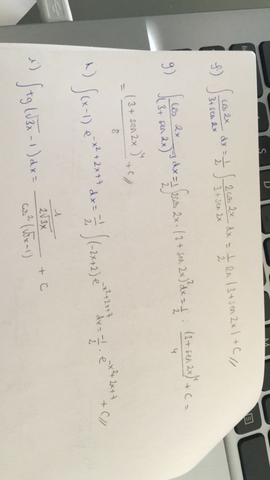 f) ∫ cos 2x / (3+sen 2x) dx = 1/2 ∫ 2cos 2x / (3+sen 2x) dx = 1/2 ln |3+sen 2x| + C //
g) ∫ cos 2x (3+sen 2x)³ dx = 1/2 ∫ 2cos 2x · (3+sen 2x)³ dx = 1/2 · (3+sen 2x)⁴ / 4 + C =
= (3+sen 2x)⁴ / 8 + C //
h) ∫ (x-1) e^(-x²+2x+7) dx = -1/2 ∫ (-2x+2) e^(-x²+2x+7) dx = -1/2 · e^(-x²+2x+7) + C //
i) ∫ tg (√3x - 1) dx = (1 / 2√3x) / cos² (√3x - 1) + C